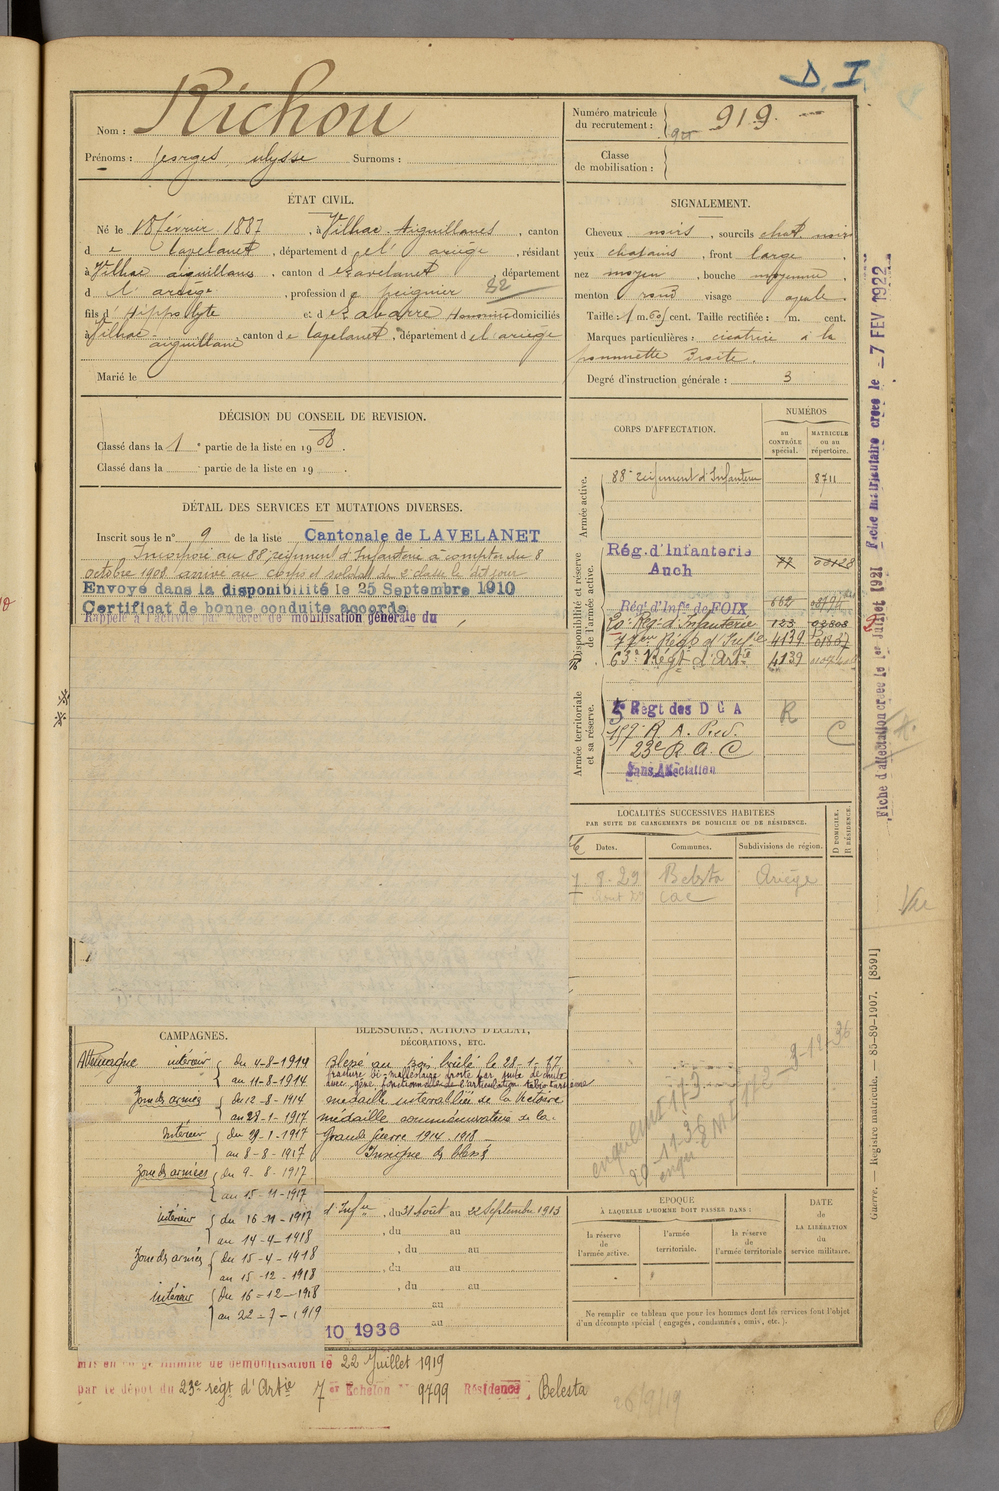 D. I.
Nom : Richou
Prénoms : Georges Ulysse Surnoms :
Numéro matricule
du recrutement : 919
Classe
de mobilisation :
ÉTAT CIVIL.
Né le 18 février 1887, à Vilhac Aiguillanes, canton
de Lavelanet, département de l'ariège, résidant
à Vilhac aiguillanes, canton de Lavelanet, département
d l'ariège, profession de peignier 32
fils d'Hippolyte et de Labarre Honorine domiciliés
à Vilhac-aiguillane, canton de lavelanet, département de l'ariège
Marié le
SIGNALEMENT.
Cheveux noirs, sourcils chat. noirs
yeux chatains, front large,
nez moyen, bouche moyenne,
menton rond visage ovale.
Taille : 1 m. 60 cent. Taille rectifiée : m. cent.
Marques particulières : cicatrice à la
pommette droite.
Degré d'instruction générale : 3
DÉCISION DU CONSEIL DE REVISION.
Classé dans la 1e partie de la liste en 1908.
Classé dans la partie de la liste en 19 .
DÉTAIL DES SERVICES ET MUTATIONS DIVERSES.
Inscrit sous le n° 9 de la liste Cantonale de LAVELANET
Incorporé au 88e régiment d'Infanterie à compter du 8
octobre 1908 arrivé au corps et soldat de 2e classe le dit jour
Envoyé dans la disponibilité le 25 Septembre 1910
Certificat de bonne conduite accordé
Rappelé à l'activité par Décret de mobilisation générale du
CORPS D'AFFECTATION.
NUMÉROS
au
CONTRÔLE
spécial.
MATRICULE
ou au
répertoire.
Armée active.
88e régiment d'Infanterie 8711
Disponibilité et réserve
de l'armée active.
Rég. d'Infanterie
Auch 77
Rég' d'Infie de FOIX 662
Rég' d'Infanterie 123 02808
Régt d'Infie 4139
63e Régt d'Artie 4139
Armée territoriale
et sa réserve.
5 Regt des D C A R
157e R. A. Pied.
23e R. A. C C
Sans Affectation
LOCALITÉS SUCCESSIVES HABITÉES
PAR SUITE DE CHANGEMENTS DE DOMICILE OU DE RÉSIDENCE.
Dates. Communes. Subdivisions de région. D DOMICILE. R RÉSIDENCE.
7 8-29 Belesta Ariège
CAMPAGNES.
Allemagne intérieur du 4-8-1914
au 11-8-1914
Zone des armées du 12-8-1914
au 28-1-1917
Intérieur du 29-1-1917
au 8-8-1917
Zone des armées du 9-8-1917
au 15-11-1917
intérieur du 16-11-1917
au 14-4-1918
Zone des armées du 15-4-1918
au 15-12-1918
intérieur du 16-12-1918
au 22-7-1919
BLESSURES, ACTIONS D'ÉCLAT,
DÉCORATIONS, ETC.
Blessé au Bois brulé le 28-1-17
fracture bi-malléolaire droite par
avec gêne fonctionnelle de l'articulation tibio tarsienne
médaille interalliée de la Victoire
médaille commémorative de la
Grande Guerre 1914-1918
Insigne des blessés
d'Infie, du 31 Août au 22 Septembre 1913
, du au
, du au
, du au
, du au
au
au
10 1936
ÉPOQUE
À LAQUELLE L'HOMME DOIT PASSER DANS :
la réserve
de
l'armée active.
l'armée
territoriale.
la réserve
de
l'armée territoriale
DATE
de
LA LIBÉRATION
du
service militaire.
Ne remplir ce tableau que pour les hommes dont les services font l'objet
d'un décompte spécial (engagés, condamnés, omis, etc.).
Mis en congé illimité de démobilisation le 22 Juillet 1919
par le dépôt du 23e régt d'Artie 7 er Echelon n° 9799 Résidence, Belesta
26/9/19
9-12-36
20-11-36
Fiche d'affectation créée le 1er Juillet 1921 Fiche matriculaire créée le -7 FEV 1922
Vu
Guerre. — Registre matricule. — 85-89-1907. [8591]